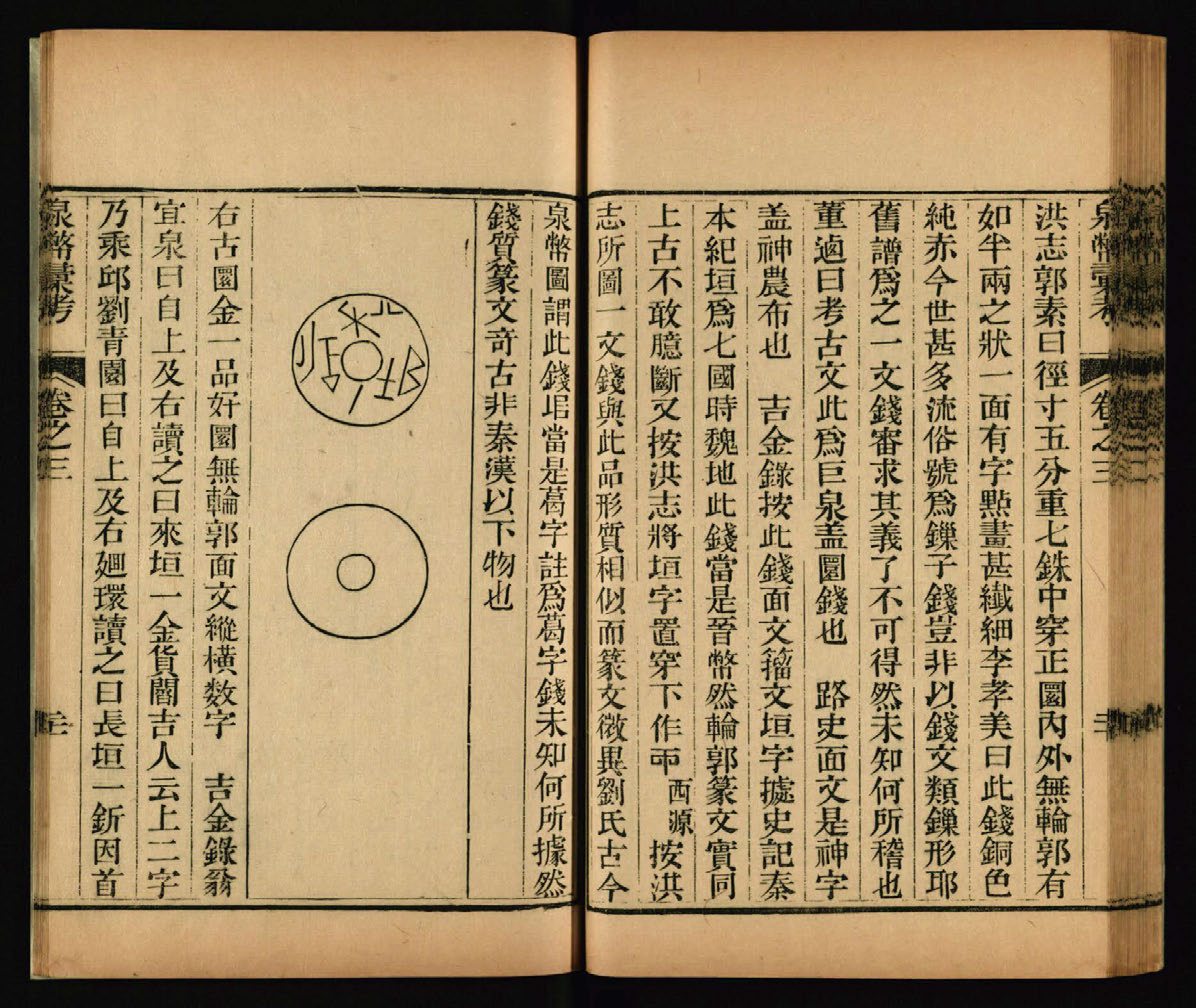 泉幣彙考 卷之三 二十
洪志郭素曰徑寸五分重七銖中穿正圜內外無輪郭有
如半兩之狀一面有字點畫甚纎細李孝美曰此錢銅色
純赤今世甚多流俗號爲鏁子錢豈非以錢文類鏁形耶
舊譜爲之一文錢審求其義了不可得然未知何所稽也
董逌曰考古文此爲巨泉盖圜錢也 路史面文是神字
盖神農布也 吉金錄按此錢面文籀文垣字據史記秦
本紀垣爲七國時魏地此錢當是晉幣然輪郭篆文實同
上古不敢臆斷又按洪志將垣字置穿下作
西源
按洪
志所圖一文錢與此品形質相似而篆文微異劉氏古今
泉幣圖謂此錢垖當是葛字註爲葛字錢未知何所據然
錢質篆文奇古非秦漢以下物也
右古圜金一品好圜無輪郭面文縱橫数字 吉金錄翁
宜泉曰自上及右讀之曰來垣一金貨閻吉人云上二字
乃乘邱劉青園曰自上及右廻環讀之曰長垣一釿因首
泉幣彙考 卷之三